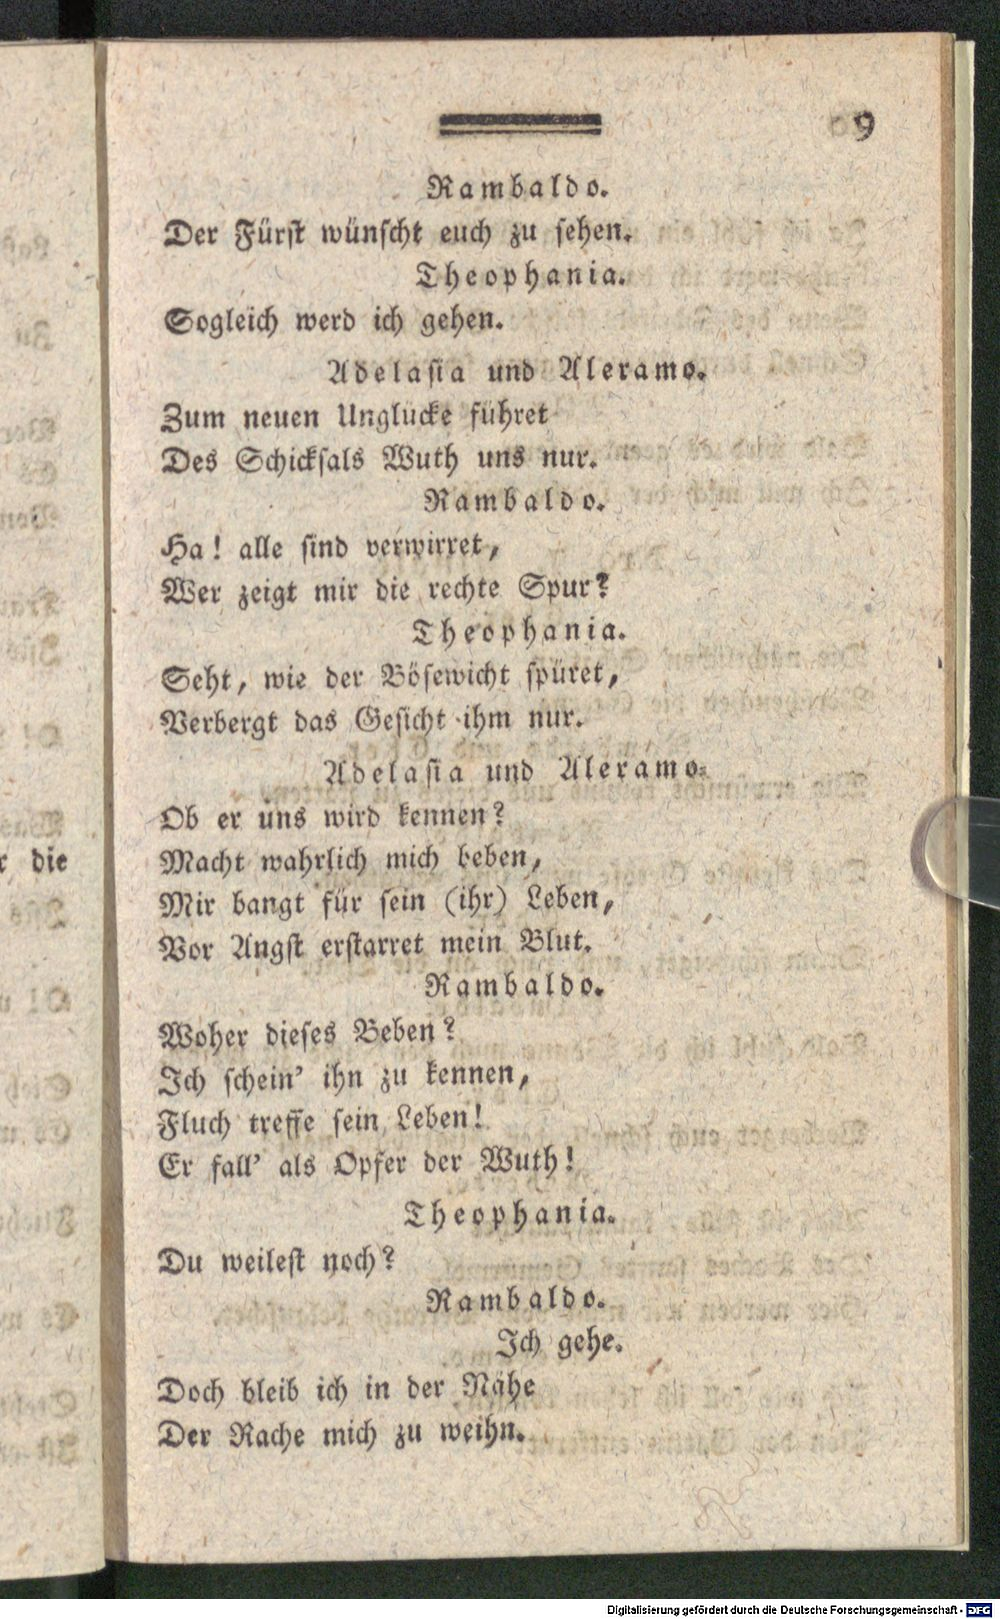 9
Rambaldo.
Der Fürst wünscht euch zu sehen.
Theophania.
Sogleich werd ich gehen.
Adelasia und Aleramo.
Zum neuen Unglücke führet
Des Schicksals Wuth uns nur.
Rambaldo.
Ha! alle sind verwirret,
Wer zeigt mir die rechte Spur?
Theophania.
Seht, wie der Bösewicht spüret,
Verbergt das Gesicht ihm nur.
Adelasia und Aleramo.
Ob er uns wird kennen?
Macht wahrlich mich beben,
Mir bangt für sein (ihr) Leben,
Vor Angst erstarret mein Blut.
Rambaldo.
Woher dieses Beben?
Ich schein' ihn zu kennen,
Fluch treffe sein Leben!
Er fall' als Opfer der Wuth!
Theophania.
Du weilest noch?
Rambaldo.
Ich gehe.
Doch bleib ich in der Nähe
Der Rache mich zu weihn.
r die
Digitalisierung gefördert durch die Deutsche Forschungsgemeinschaft - DFG